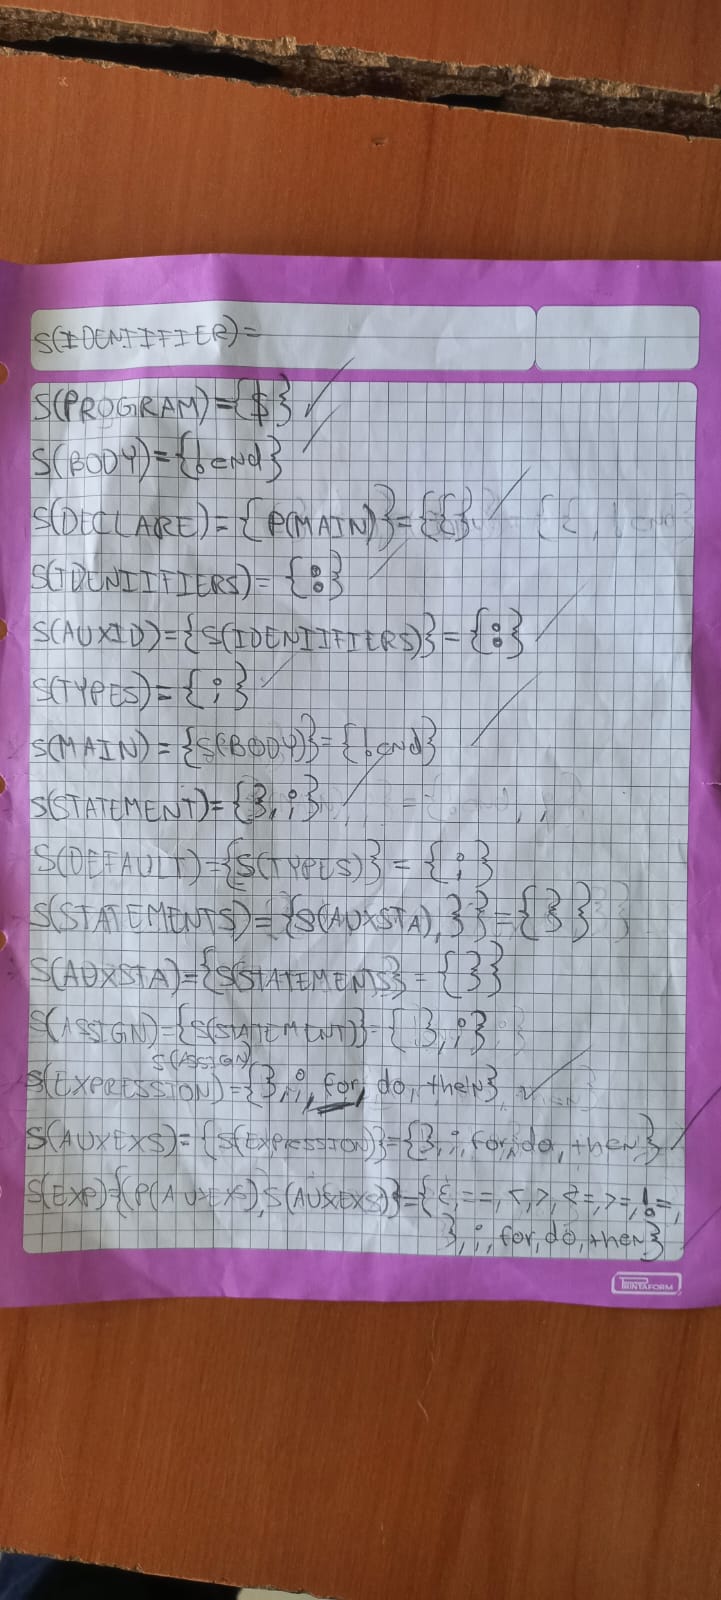 S(IDENTIFIER)=
S(PROGRAM)={$}
S(BODY)={!end}
S(DECLARE)={P(MAIN)}={{}
S(IDENTIFIERS)={:}
S(AUXID)={S(IDENTIFIERS)}={:}
S(TYPES)={;}
S(MAIN)={S(BODY)}={!end}
S(STATEMENT)={},;}
S(DEFAULT)={S(TYPES)}={;}
S(STATEMENTS)={S(AUXSTA),}}={}}
S(AUXSTA)={S(STATEMENTS}={}}
S(ASSIGN)={S(STATEMENT)}={},;}
S(ASSIGN)
S(EXPRESSION)={},;,for,do,then}
S(AUXEXS)={S(EXPRESSION)}={},;,for,do,then}
S(EXP)={(P(AUXEXS),S(AUXEXS)}={ε,==,<,>,<=,>=,!=,
},;,for,do,then}
PRINTAFORM